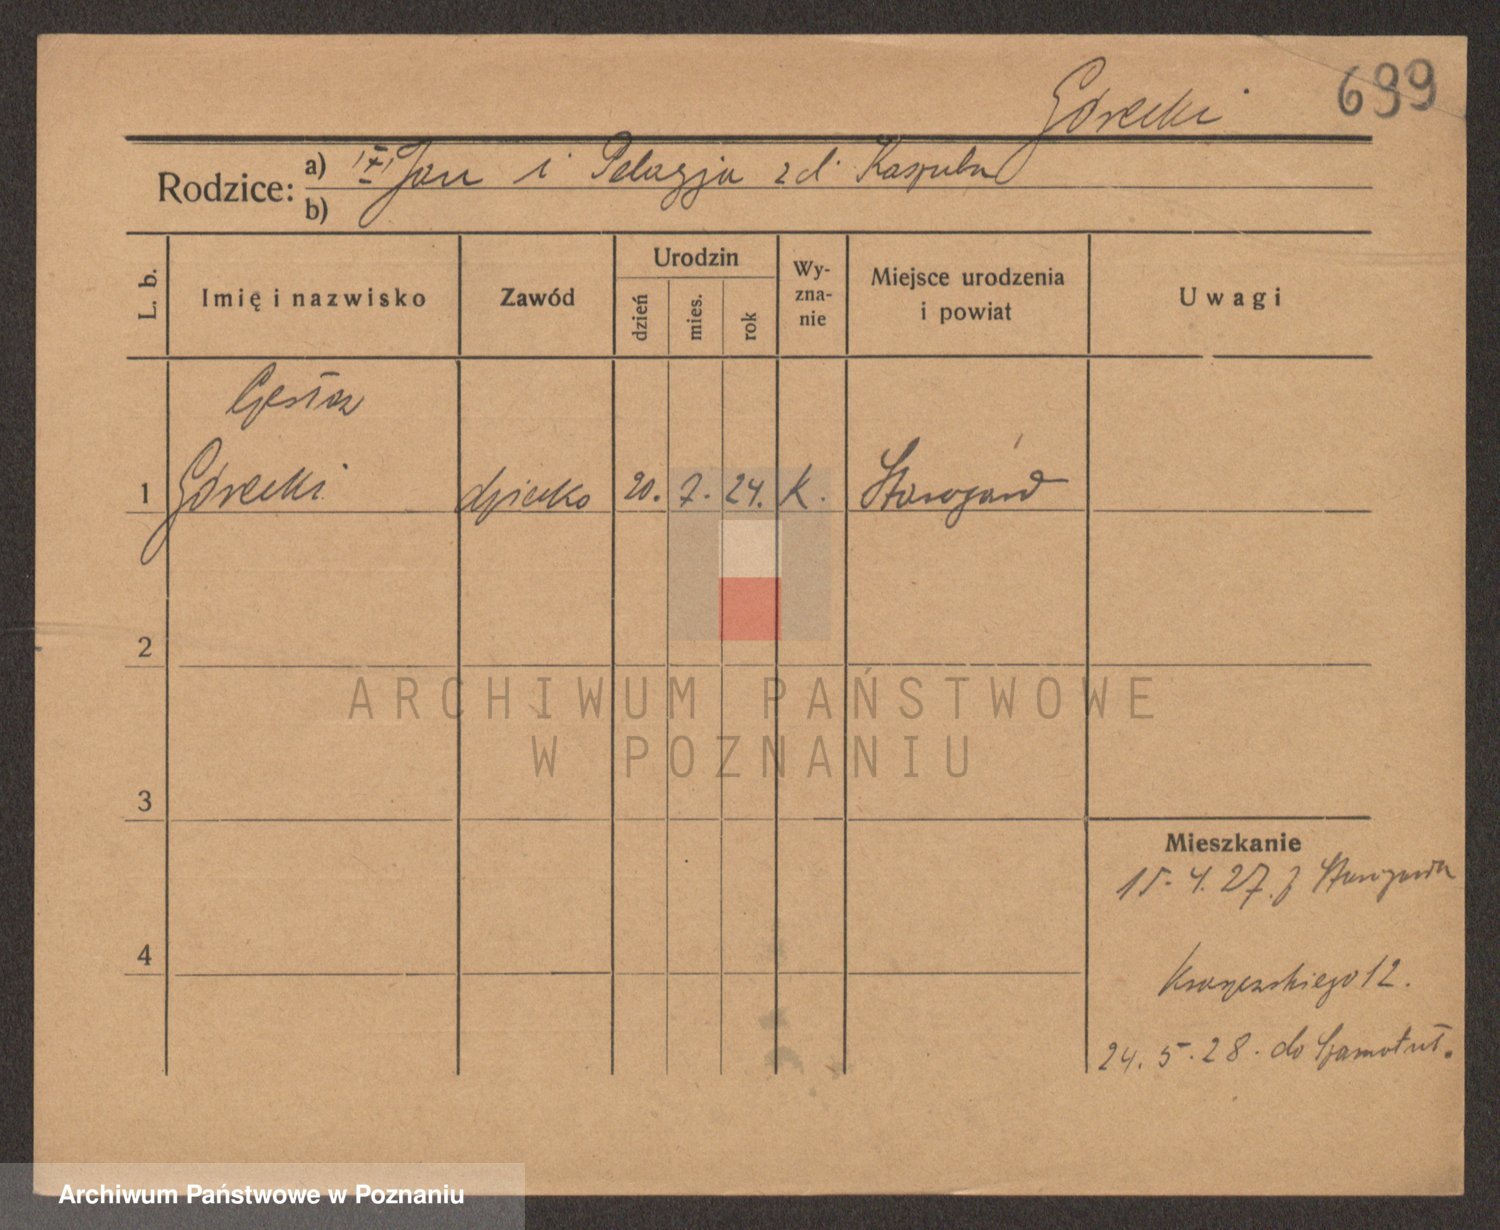 Górecki
699
Rodzice:
a) Jan i Pelagja zd.
b)
L. b.
Imię i nazwisko
Zawód
Urodzin
dzień
mies.
rok
Wy-
zna-
nie
Miejsce urodzenia
i powiat
Uwagi
Czesław
1 Górecki dziecko 20. 7. 24. K. Starogard
2
ARCHIWUM PAŃSTWOWE
W POZNANIU
3
Mieszkanie
15. 4. 27. z Starogarda
4
12.
24. 5. 28. do Szamotuł.
Archiwum Państwowe w Poznaniu